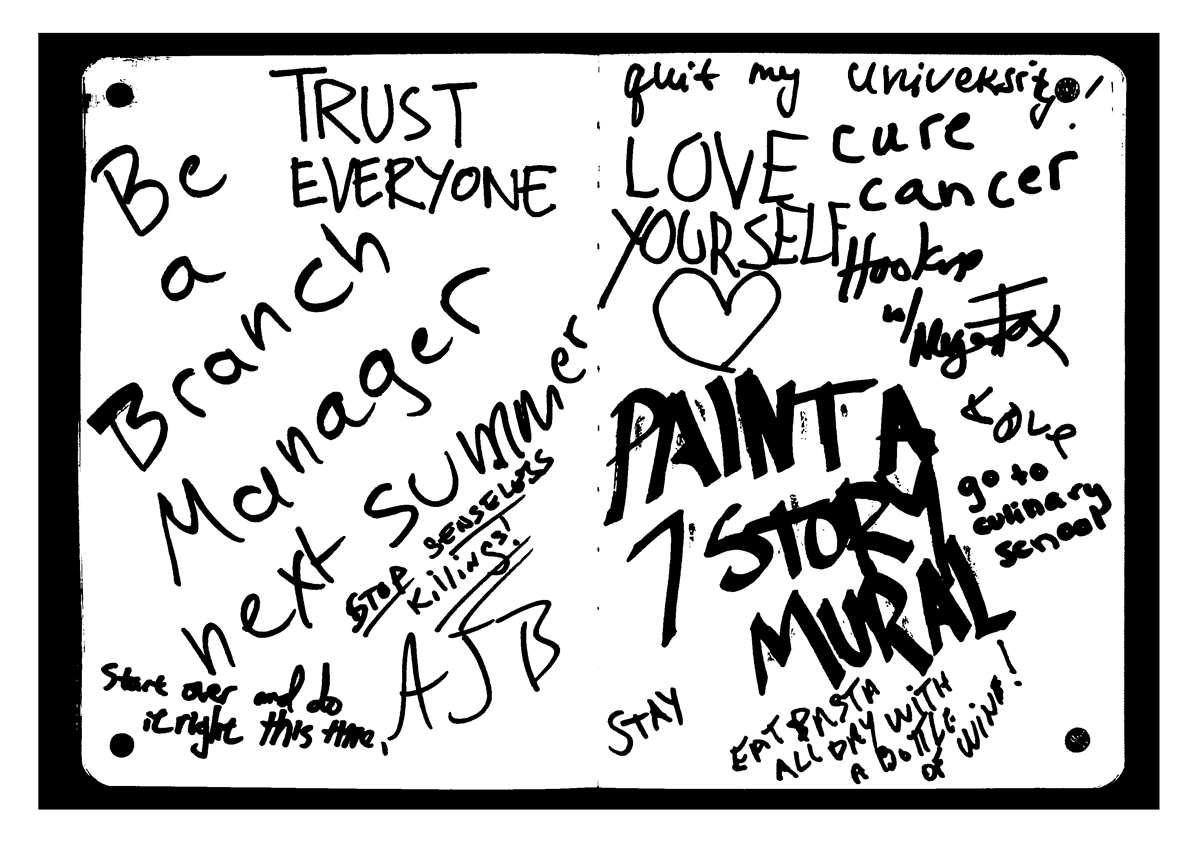 TRUST
EVERYONE
Be
a
Branch
Manager
next summer
STOP SENSELESS
Killings!
AJB
Start over and do
it right this time.
quit my university!
LOVE
YOURSELF
cure
cancer
Hookup
w/ Megan Fox
Love
go to
culinary
school
PAINT A
7 STORY
MURAL
STAY
EAT PASTA
ALL DAY WITH
A BOTTLE
OF WINE!